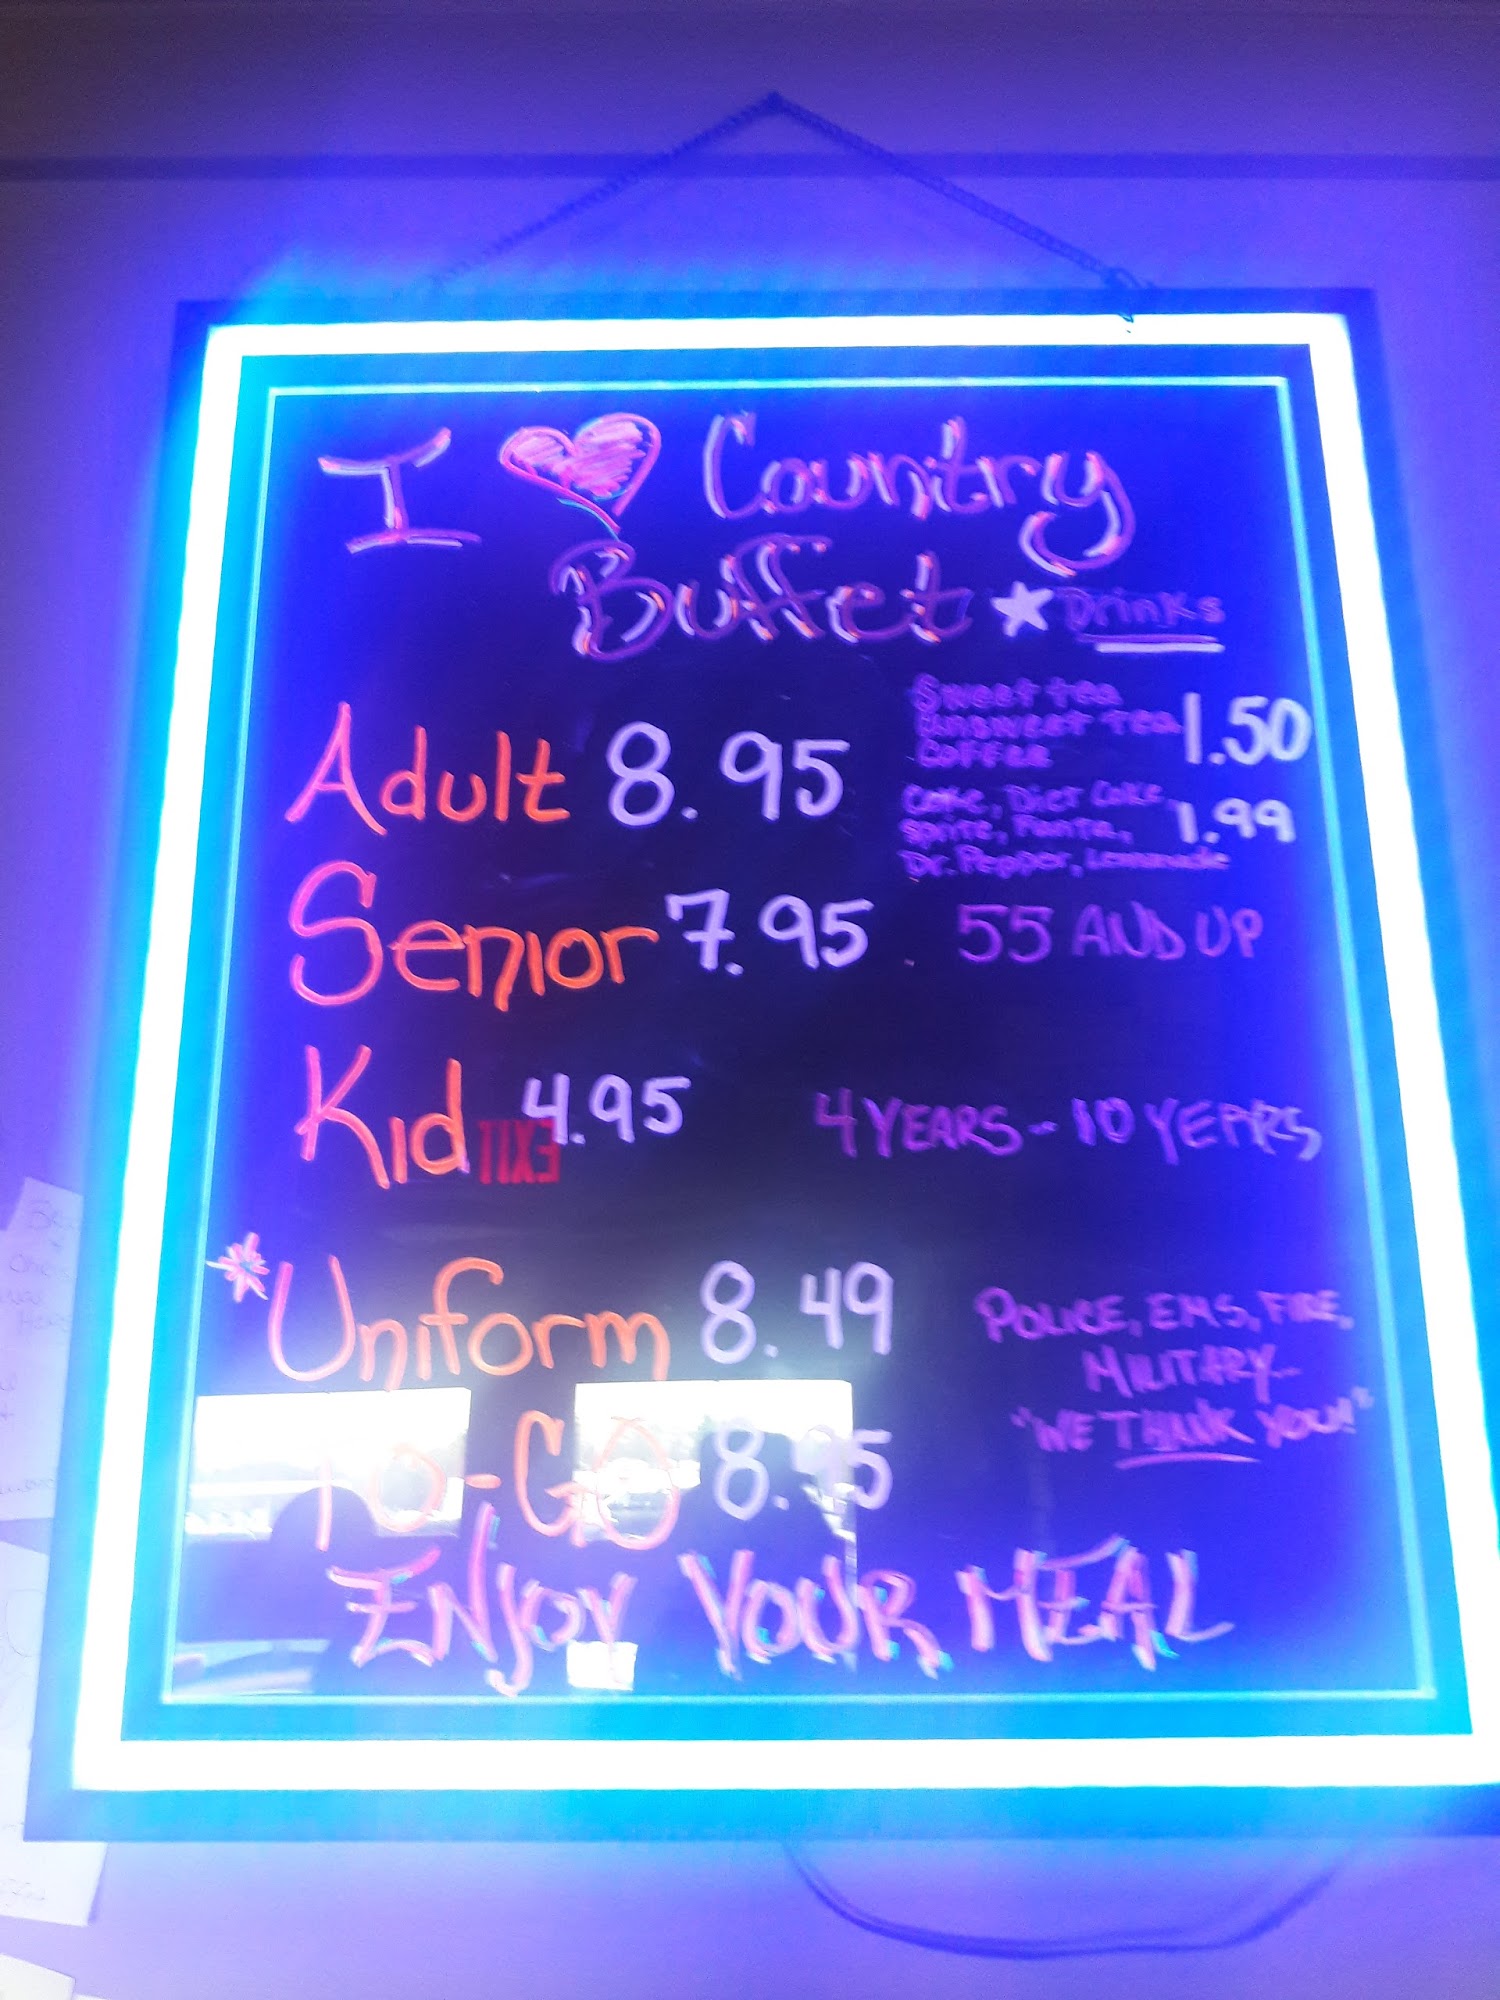 I ❤ Country
Buffet ★ Drinks
Sweet tea
unsweet tea 1.50
Coffee
Adult 8.95
Coke, Diet Coke,
Sprite, Fanta, 1.99
Dr. Pepper, Lemonade
Senior 7.95 55 AND UP
Kid 4.95 4 YEARS - 10 YEARS
EXIT
*Uniform 8.49 POLICE, EMS, FIRE,
MILITARY...
"WE THANK YOU!"
TO-GO 8.95
ENJOY YOUR MEAL